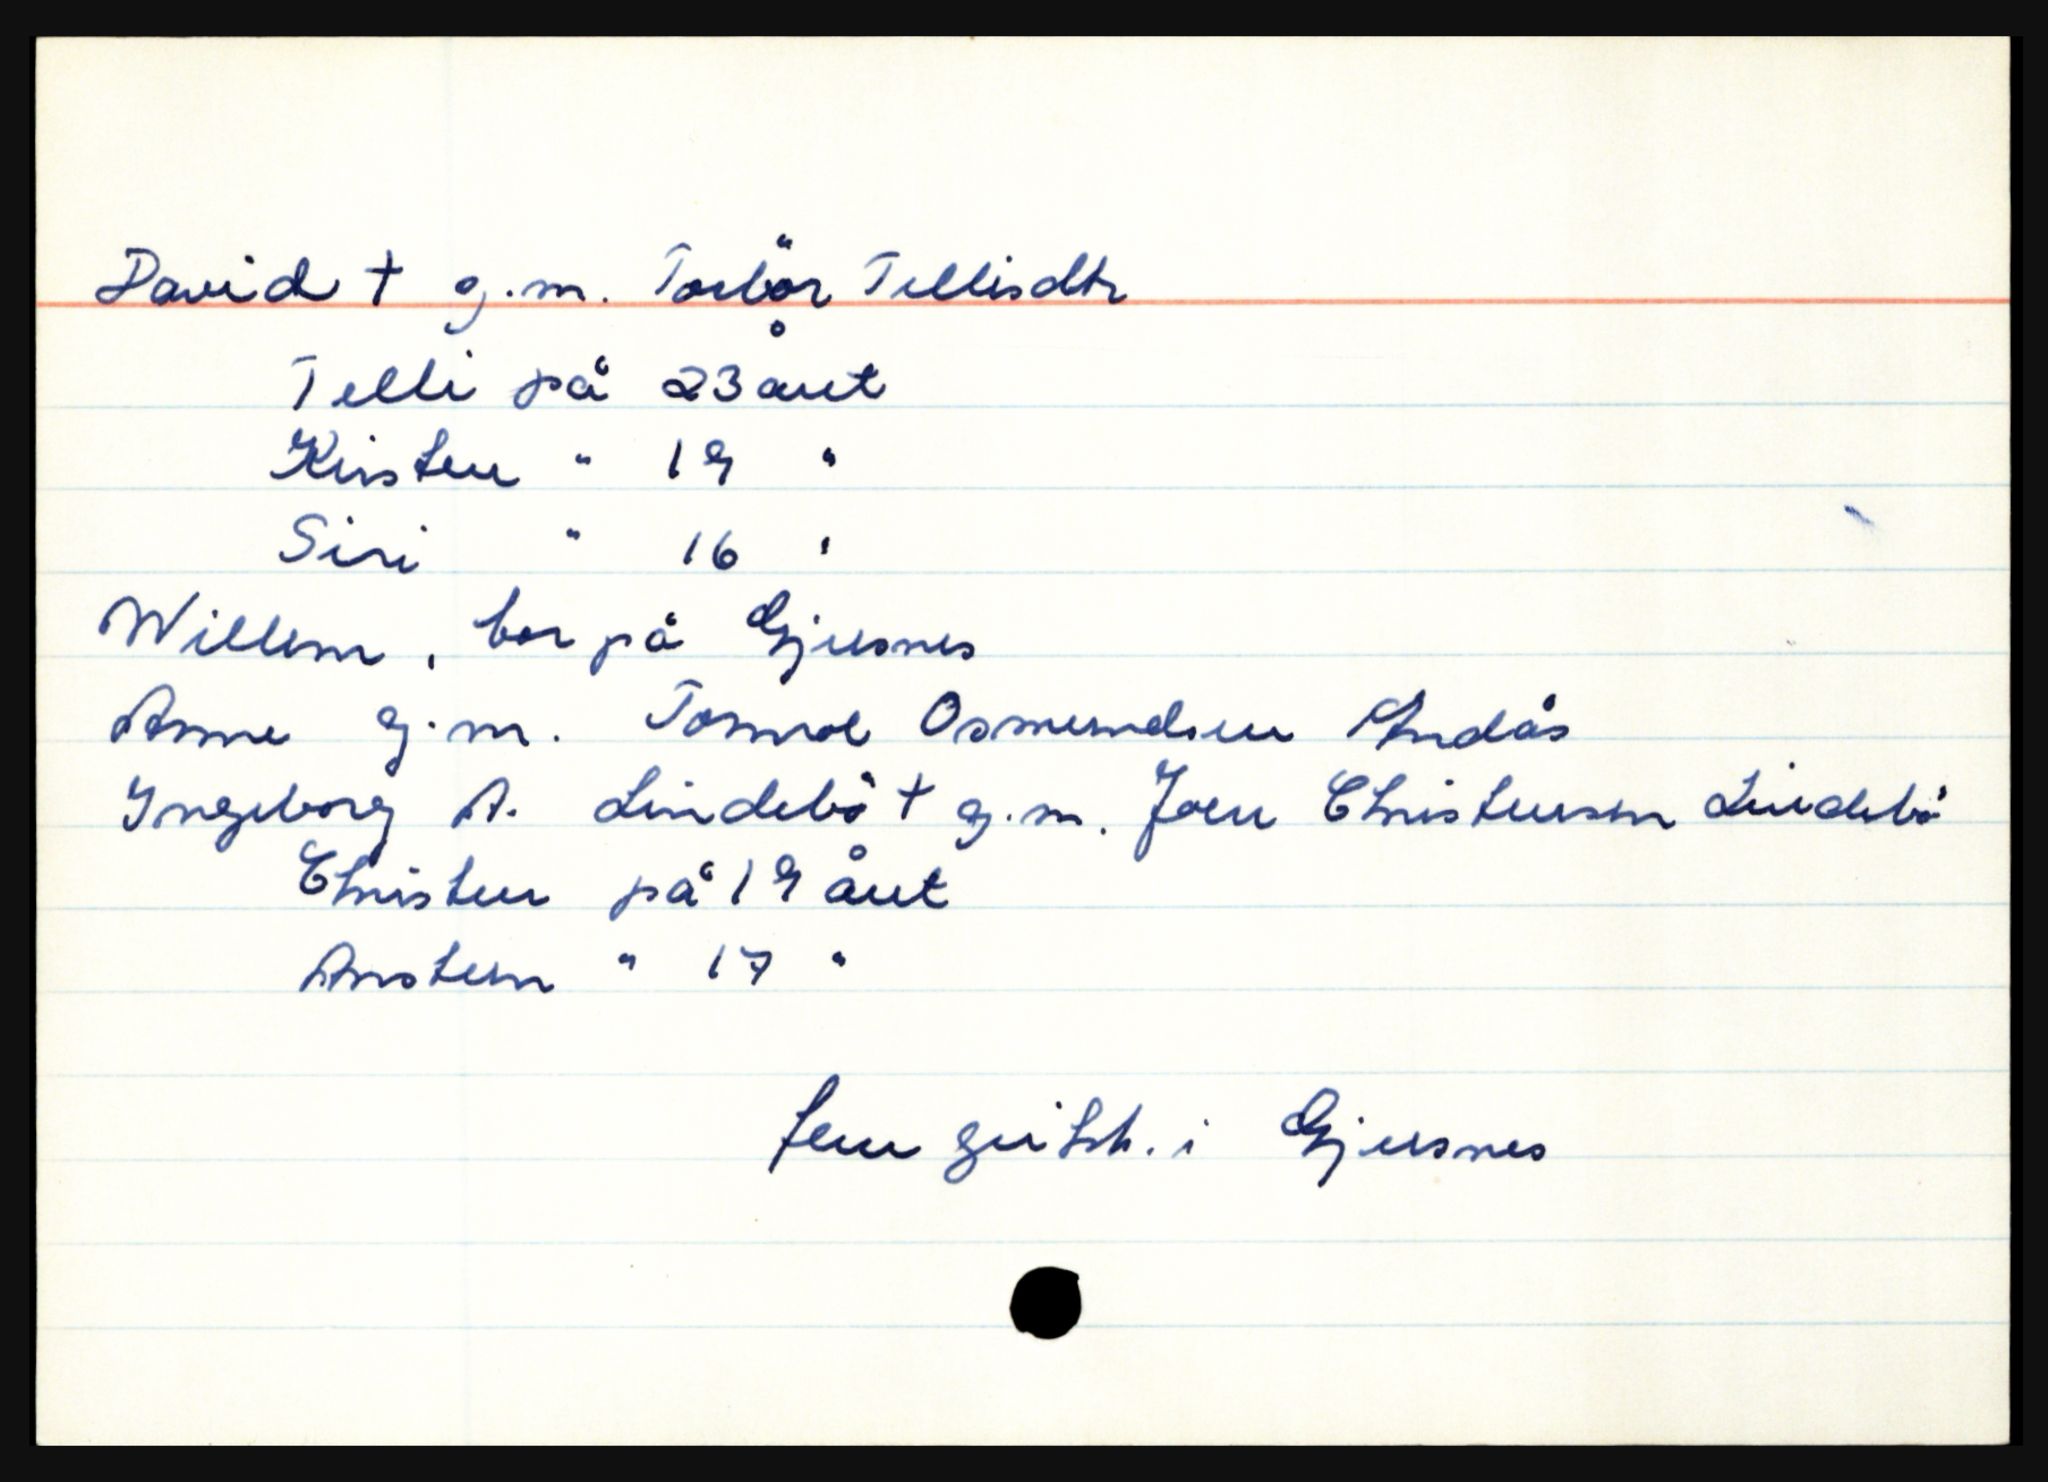 David † g.m. Torbör Tellisdtr
Telli på 23 året
Kirsten " 19 "
Siri " 16 "
Willem, bor på Gjersnes
Anne g.m. Tomval Osmundsen Andås
Ingeborg A. Lindebö † g.m. Joen Christensen Lindebö
Christen på 19 året
Ansten " 17 "
Jern i Gjersnes